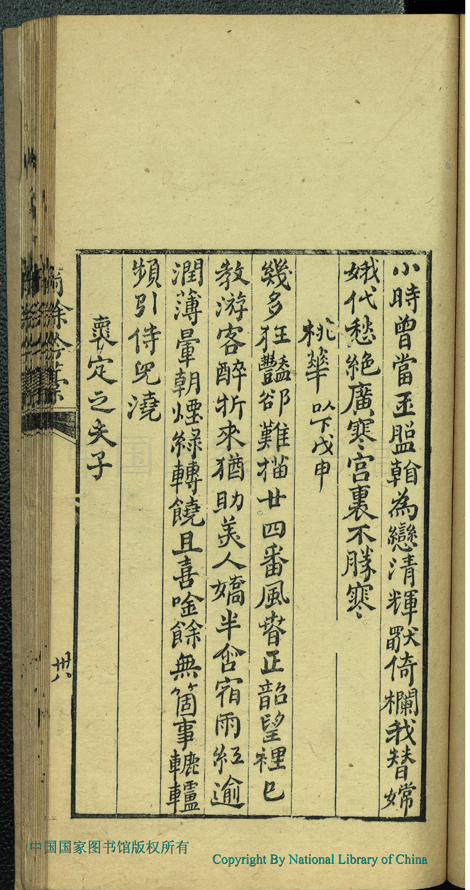 小時曾當玉盤翰為戀清輝厭倚欄我替嫦
娥代愁絶廣寒宮裏不勝寒
桃華 以下戊申
幾多狂豔卻難描廿四番風眷正韶望裡已
教游客醉折來猶助美人嬌半含宿雨紅逾
潤薄暈朝煙綠轉饒且喜唫餘無箇事轆轤
頻引侍兒澆
襄定之夫子
餘唫草
卅
中国国家图书馆版权所有
Copyright By National Library of China